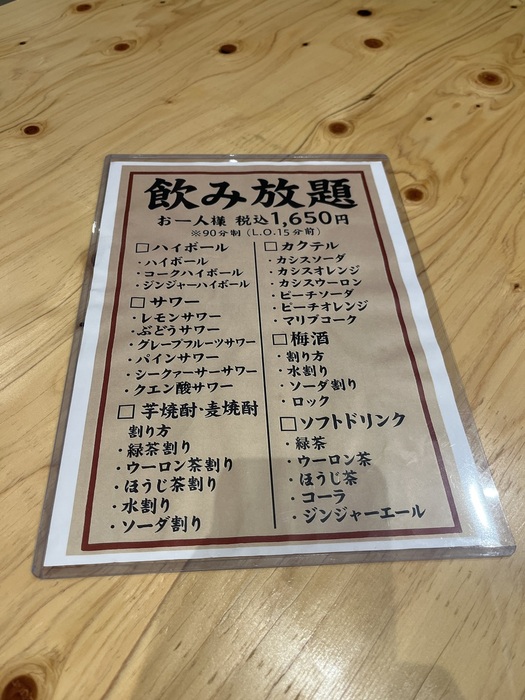 飲み放題
お一人様 税込1,650円
※90分制（L.O.15分前）
□ハイボール
・ハイボール
・コークハイボール
・ジンジャーハイボール
□サワー
・レモンサワー
・ぶどうサワー
・グレープフルーツサワー
・パインサワー
・シークァーサーサワー
・クエン酸サワー
□芋焼酎・麦焼酎
割り方
・緑茶割り
・ウーロン茶割り
・ほうじ茶割り
・水割り
・ソーダ割り
□カクテル
・カシスソーダ
・カシスオレンジ
・カシスウーロン
・ピーチソーダ
・ピーチオレンジ
・マリブコーク
□梅酒
・割り方
・水割り
・ソーダ割り
・ロック
□ソフトドリンク
・緑茶
・ウーロン茶
・ほうじ茶
・コーラ
・ジンジャーエール